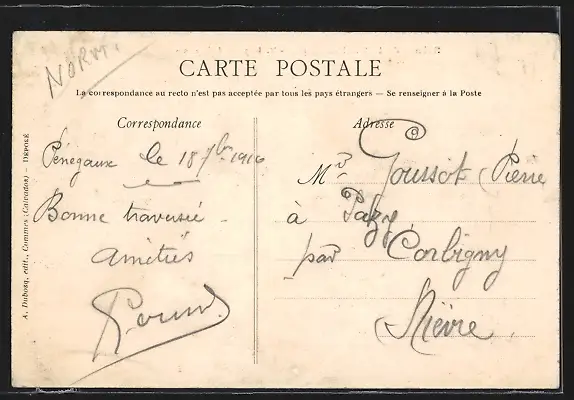 NORM.
CARTE POSTALE
La correspondance au recto n'est pas acceptée par tous les pays étrangers — Se renseigner à la Poste
Correspondance
le 18 7bre 1916
Bonne traversée
Amitiés
A. Dubosq, edit., Commes (Calvados) — DÉPOSÉ
Adresse
Mr Goussot Pierre
à
par Corbigny
Nièvre